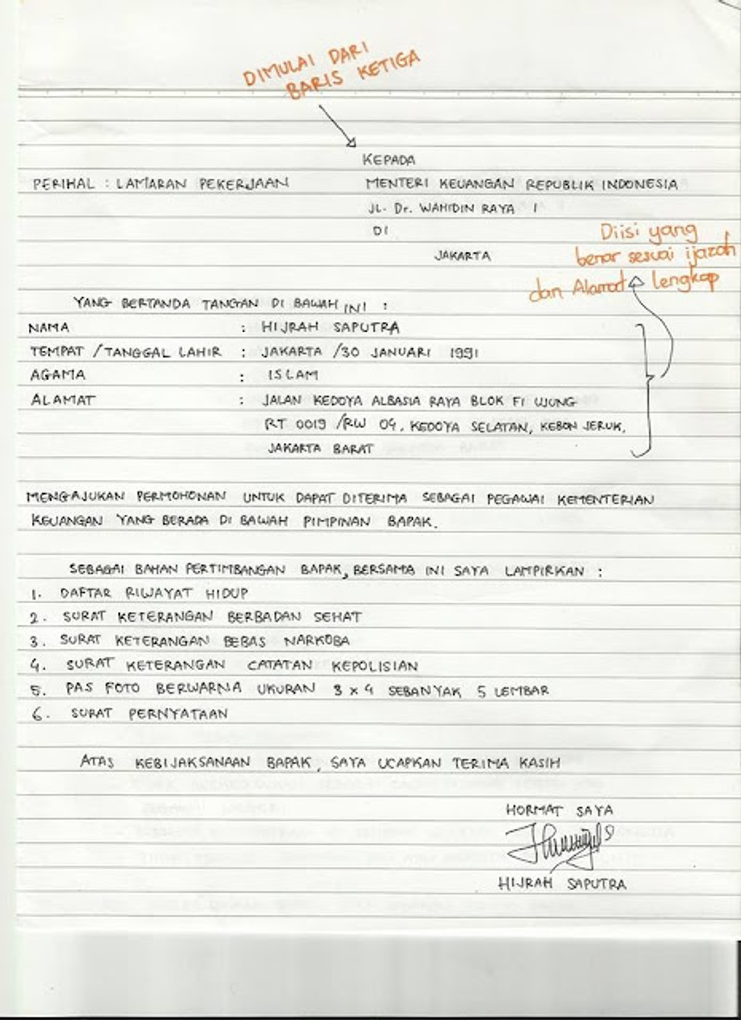 DIMULAI DARI
BARIS KETIGA
KEPADA
PERIHAL : LAMARAN PEKERJAAN MENTERI KEUANGAN REPUBLIK INDONESIA
JL. Dr. WAHIDIN RAYA I
DI
JAKARTA
Diisi yang
benar sesuai ijazah
dan Alamat lengkap
YANG BERTANDA TANGAN DI BAWAH INI :
NAMA : HIJRAH SAPUTRA
TEMPAT / TANGGAL LAHIR : JAKARTA / 30 JANUARI 1991
AGAMA : ISLAM
ALAMAT : JALAN KEDOYA ALBASIA RAYA BLOK F1 UJUNG
RT 0019 / RW 04, KEDOYA SELATAN, KEBON JERUK,
JAKARTA BARAT
MENGAJUKAN PERMOHONAN UNTUK DAPAT DITERIMA SEBAGAI PEGAWAI KEMENTERIAN
KEUANGAN YANG BERADA DI BAWAH PIMPINAN BAPAK.
SEBAGAI BAHAN PERTIMBANGAN BAPAK, BERSAMA INI SAYA LAMPIRKAN :
1. DAFTAR RIWAYAT HIDUP
2. SURAT KETERANGAN BERBADAN SEHAT
3. SURAT KETERANGAN BEBAS NARKOBA
4. SURAT KETERANGAN CATATAN KEPOLISIAN
5. PAS FOTO BERWARNA UKURAN 3 x 4 SEBANYAK 5 LEMBAR
6. SURAT PERNYATAAN
ATAS KEBIJAKSANAAN BAPAK, SAYA UCAPKAN TERIMA KASIH
HORMAT SAYA
HIJRAH SAPUTRA